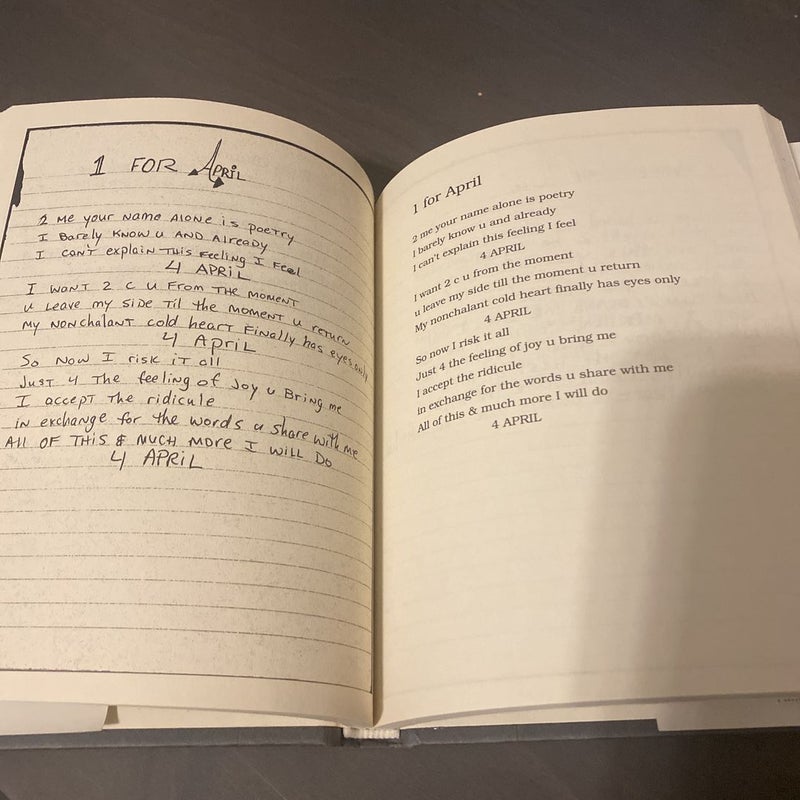 1 FOR April
2 me your name alone is poetry
I Barely Know u AND Already
I can't explain This Feeling I Feel
4 APRiL
I WANT 2 C U From The MOMENT
u Leave my side Til the moment u return
My NONchalant cold heart Finally has eyes only
4 April
So Now I risk it all
Just 4 The feeling of Joy u Bring me
I accept the ridicule
in exchange for the words u share with me
All OF THiS & MUCH MORE I WiLL Do
4 APRiL
1 for April
2 me your name alone is poetry
I barely know u and already
I can't explain this feeling I feel
4 APRIL
I want 2 c u from the moment
u leave my side till the moment u return
My nonchalant cold heart finally has eyes only
4 APRIL
So now I risk it all
Just 4 the feeling of joy u bring me
I accept the ridicule
in exchange for the words u share with me
All of this & much more I will do
4 APRIL